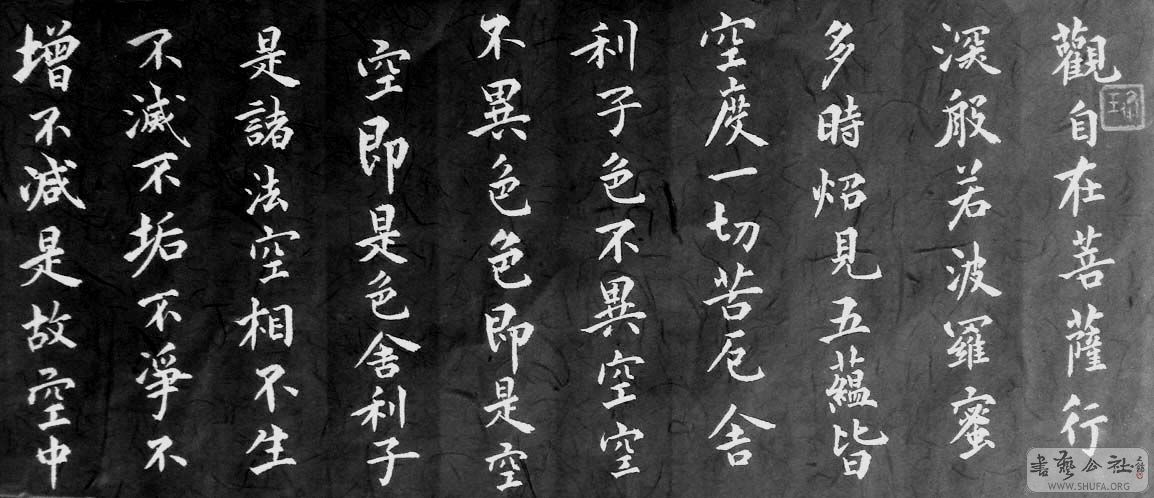 觀自在菩薩行
深般若波羅蜜
多時炤見五蘊皆
空度一切苦厄舍
利子色不異空空
不異色色即是空
空即是色舍利子
是諸法空相不生
不滅不垢不淨不
增不減是故空中
書藝公社
WWW.SHUFA.ORG